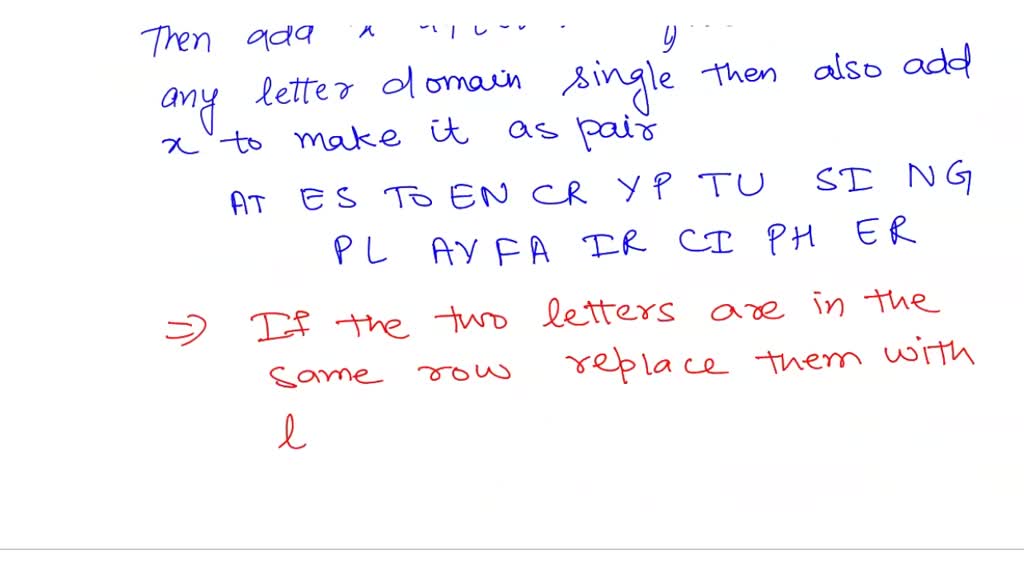 Then add x
any letter domain single then also add
x to make it as pair
AT ES TO EN CR YP TU SI NG
PL AY FA IR CI PH ER
⇒ If the two letters are in the
same row replace them with
l